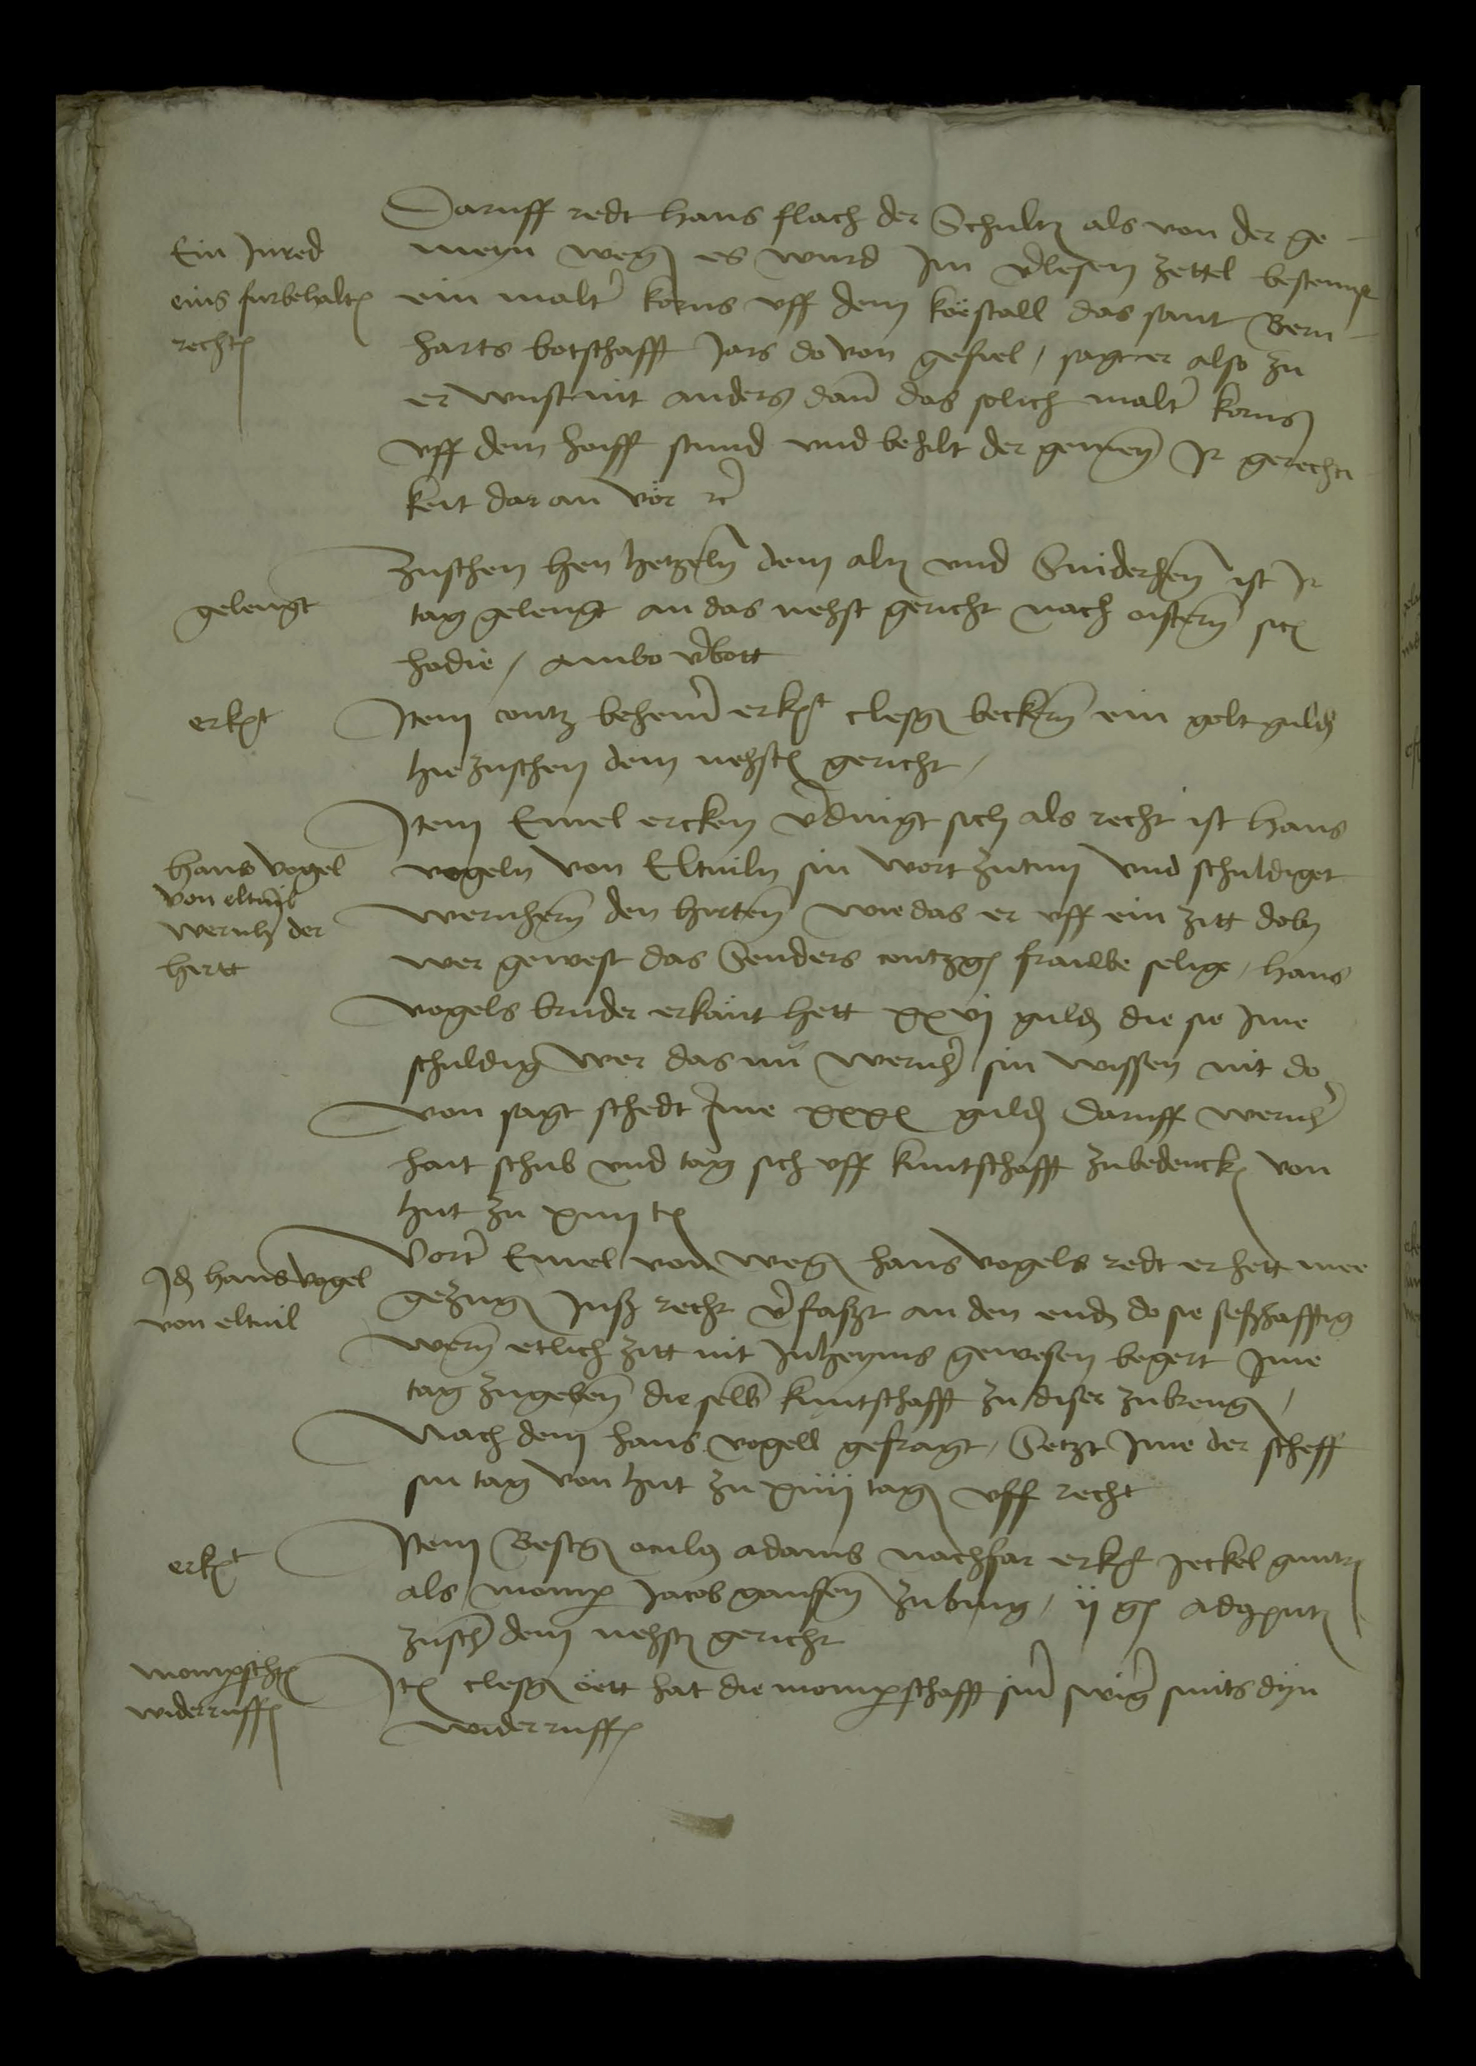 Ein Inred
eins furbehaltens
rechten
Daruff redt Hans Flach der Schultes als von der ge-
meyn wegen es wurd im verlesen zettel bestempt
ein malter korns uff dem koëstall das sant Bern-
harts botschafft Jars do von gefiel, sagt er also zu
er wust nit anders dann das solich malter korns
uff dem hoiff stund und behilt der gemeyn Ir gerechti
keit dar an vör etc
gelengt
Zuschen Hen Hetzeln dem alten und Sniderhen ist Ir
tag gelengt an das nehst gericht nach ostern sicut
hodie, ambo verbott
erkant
Item Contz Behem erkant Clesgin Beckern ein golt gulden
hie zuschen dem nehsten gericht,
Hans Vogel
von Eltuil
Wernher der
hirtt
Item Emel Ercken verdingt sich als recht ist Hans
Vogeln von Eltuiln sin wort zutun und schuldiget
Wernhern den hirten wie das er uff ein zitt doby
wer gewest das Henders Contzgins frauwe selige, Hans
Vogels bruder erkant hett xxvj gulden die sie Ime
schuldig wer das nu Wernher sin wissen nit do
von sagt schedt Ime xxx gulden Daruff Wernher
hait schub und tag sich uff kuntschafft zubedencken von
hut zu xiiij tagen
Idem Hans Vogel
von Eltuil
Vorter Emel von wegen Hans Vogels redt er hett mee
gezugen Inß recht verfaßt an den enden do sie seßhafftig
wern etlich zitt nit Inheyms gewesen begert Ime
tag zugeben die selb kuntschafft zu diser zubrengen,
Nach dem Hans Vogell gefragt, Setzt Ime der scheffen
sin tag von hut zu xiiij tagen uff recht
erkant
Item Bestgin Oculus Adams nachfar erkant Jeckel
als momper Jacob Gauffen zu Bing, ij gulden
zuschen dem nehsten gericht
momperschafft
widerruffen
Item Clesgin Oëtt hat die momperschafft siner swiger Smits Dyn
widerruffen